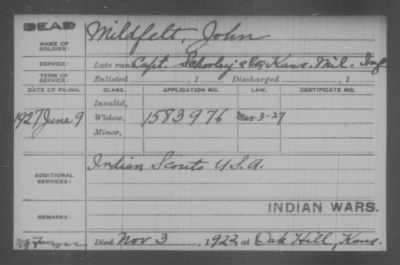 DEAD
NAME OF SOLDIER: Mildfelt, John
SERVICE: Late rank Capt. Co., Kans. Mil. Inf
TERM OF SERVICE: Enlisted , 1 Discharged , 1
DATE OF FILING. CLASS. APPLICATION NO. LAW. CERTIFICATE NO.
Invalid,
1927 June 9 Widow, 1583976 Mar-3-27
Minor,
ADDITIONAL SERVICES: Indian Scouts U.S.A.
INDIAN WARS.
REMARKS:
Died Nov 3, 1922 at Oak Hill, Kans.